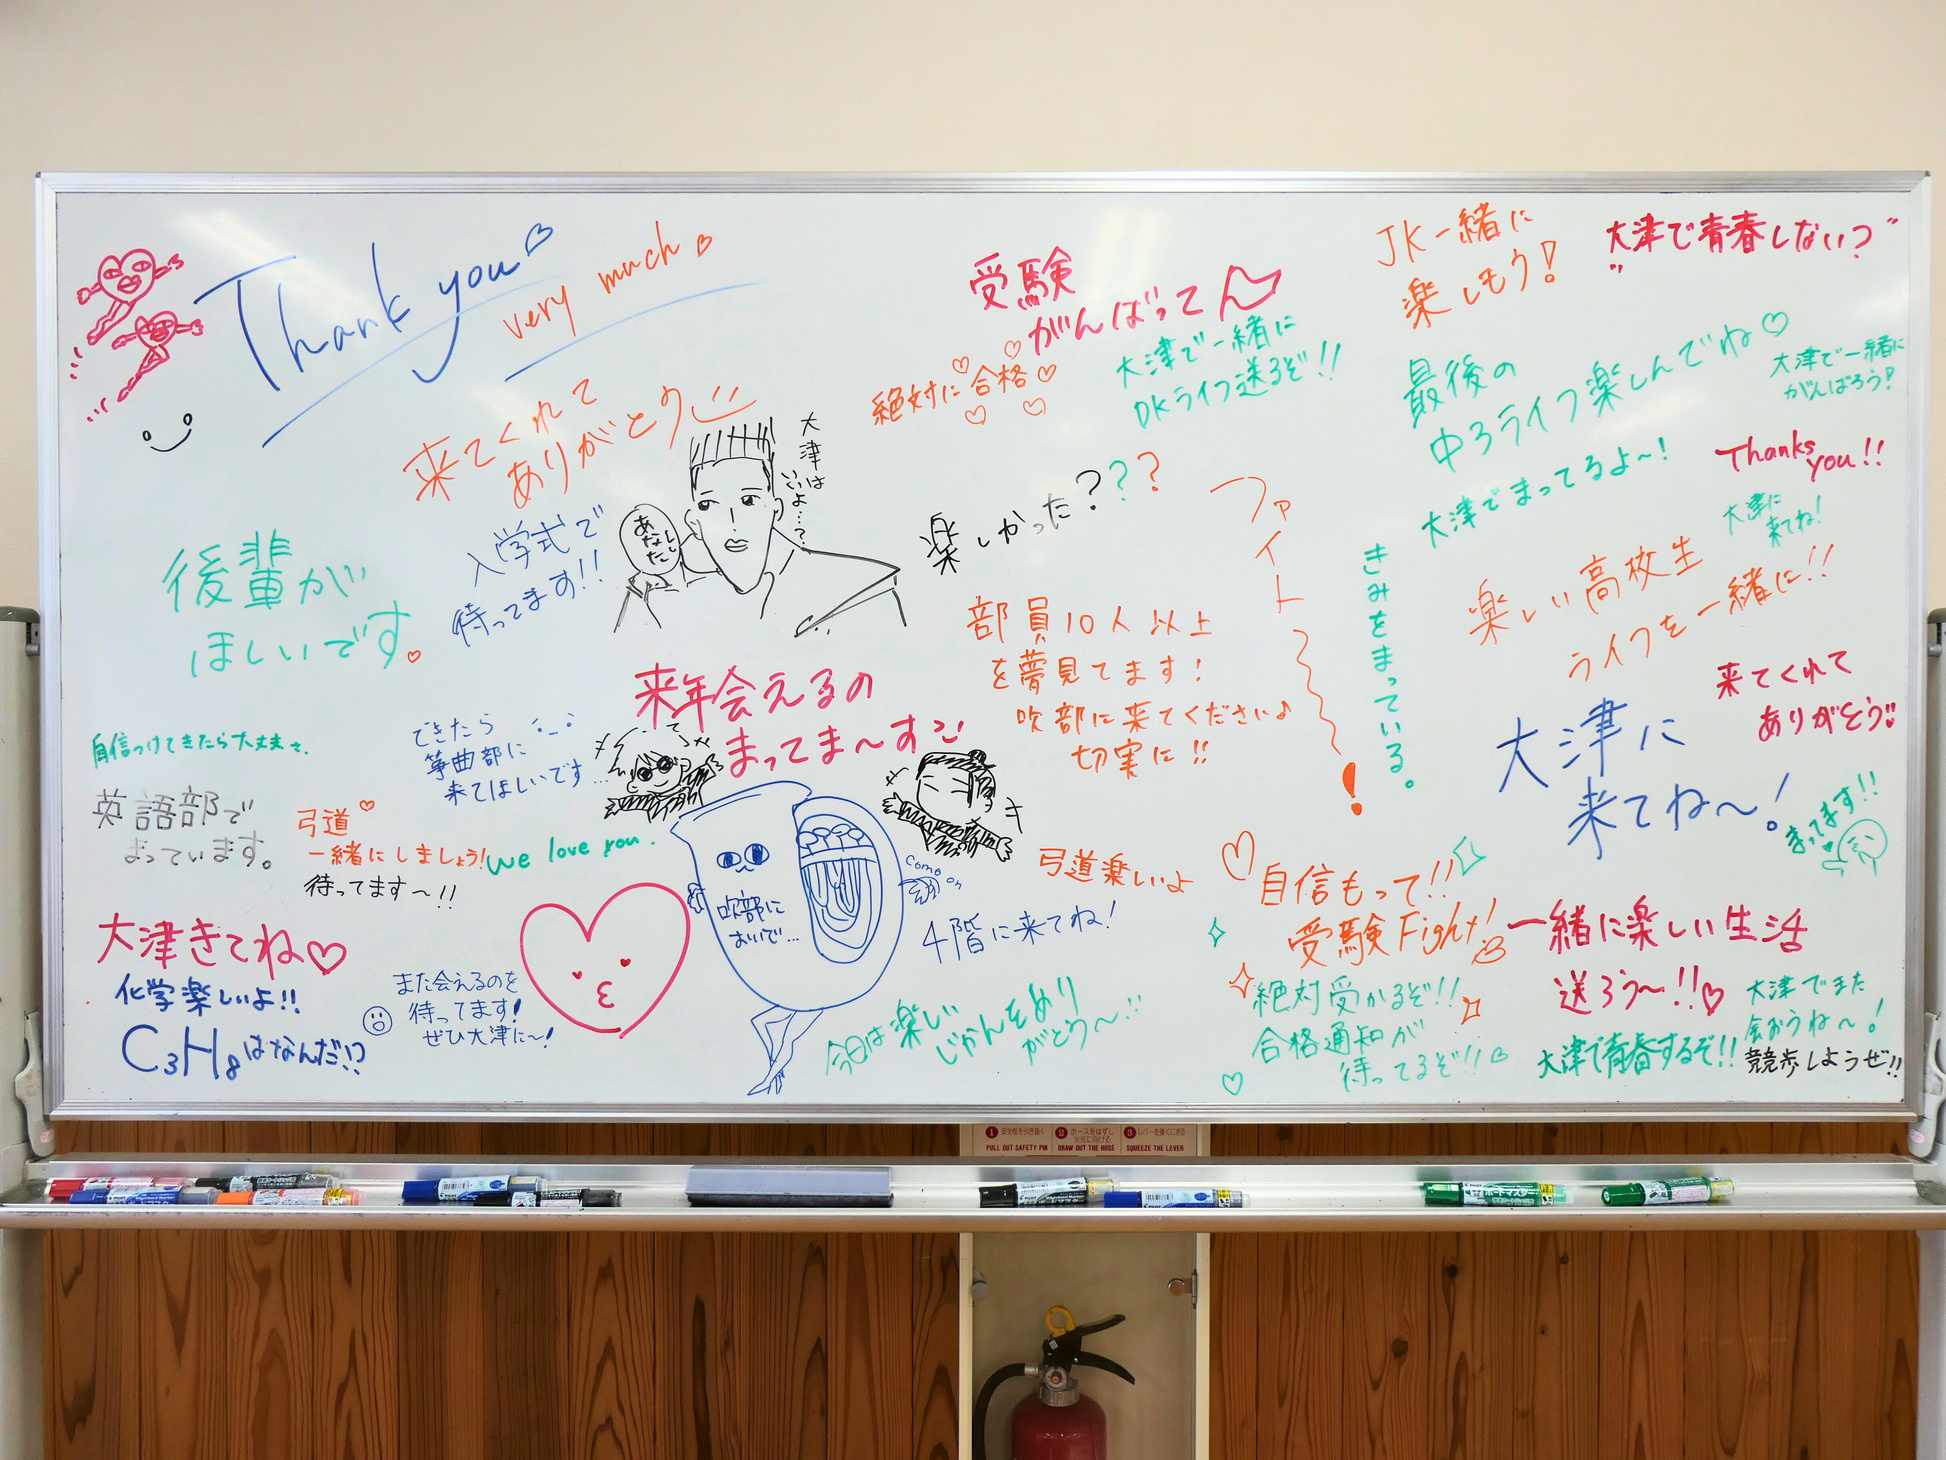 Thank you
very much
来てくれて
ありがとう
入学式で
待ってます!!
後輩が
ほしいです。
大津は
いいよ…?
あなた
受験
がんばって
絶対に合格
大津で一緒に
DKライフ送るぞ!!
楽しかった???
ファイト〜!
きみをまっている。
JK一緒に
楽しもう!
"大津で青春しない?"
最後の
中3ライフ楽しんでね
大津で一緒に
がんばろう!
大津でまってるよ~!
Thanks
you!!
大津に
来てね!
楽しい高校生
ライフを一緒に!!
来てくれて
ありがとう
大津に
来てね~!
まってます!!
部員10人以上
を夢見てます!
吹部に来てください♪
切実に!!
来年会えるの
まってま~す
自信つけてきたら大丈夫さ.
英語部で
まっています。
できたら
箏曲部に
来てほしいです…
弓道
一緒にしましょう!
待ってます~!!
we love you.
大津きてね♡
化学楽しいよ!!
C₃H₈はなんだ!?
また会えるのを
待ってます!
ぜひ大津に~!
吹部に
おいで…
come on
弓道楽しいよ
4階に来てね!
今日は楽しい
じかんをあり
がとう~!!
自信もって!!
受験Fight!
絶対受かるぞ!!
合格通知が
待ってるぞ!!
一緒に楽しい生活
送ろう~!!♡
大津で青春するぞ!!
大津でまた
会おうね~!
競歩しようぜ!!
1 安全栓を引き抜く
PULL OUT SAFETY PIN
2 ホースをはずし
火元に向ける
DRAW OUT THE HOSE
3 レバーを強くにぎる
SQUEEZE THE LEVER
ボードマスター